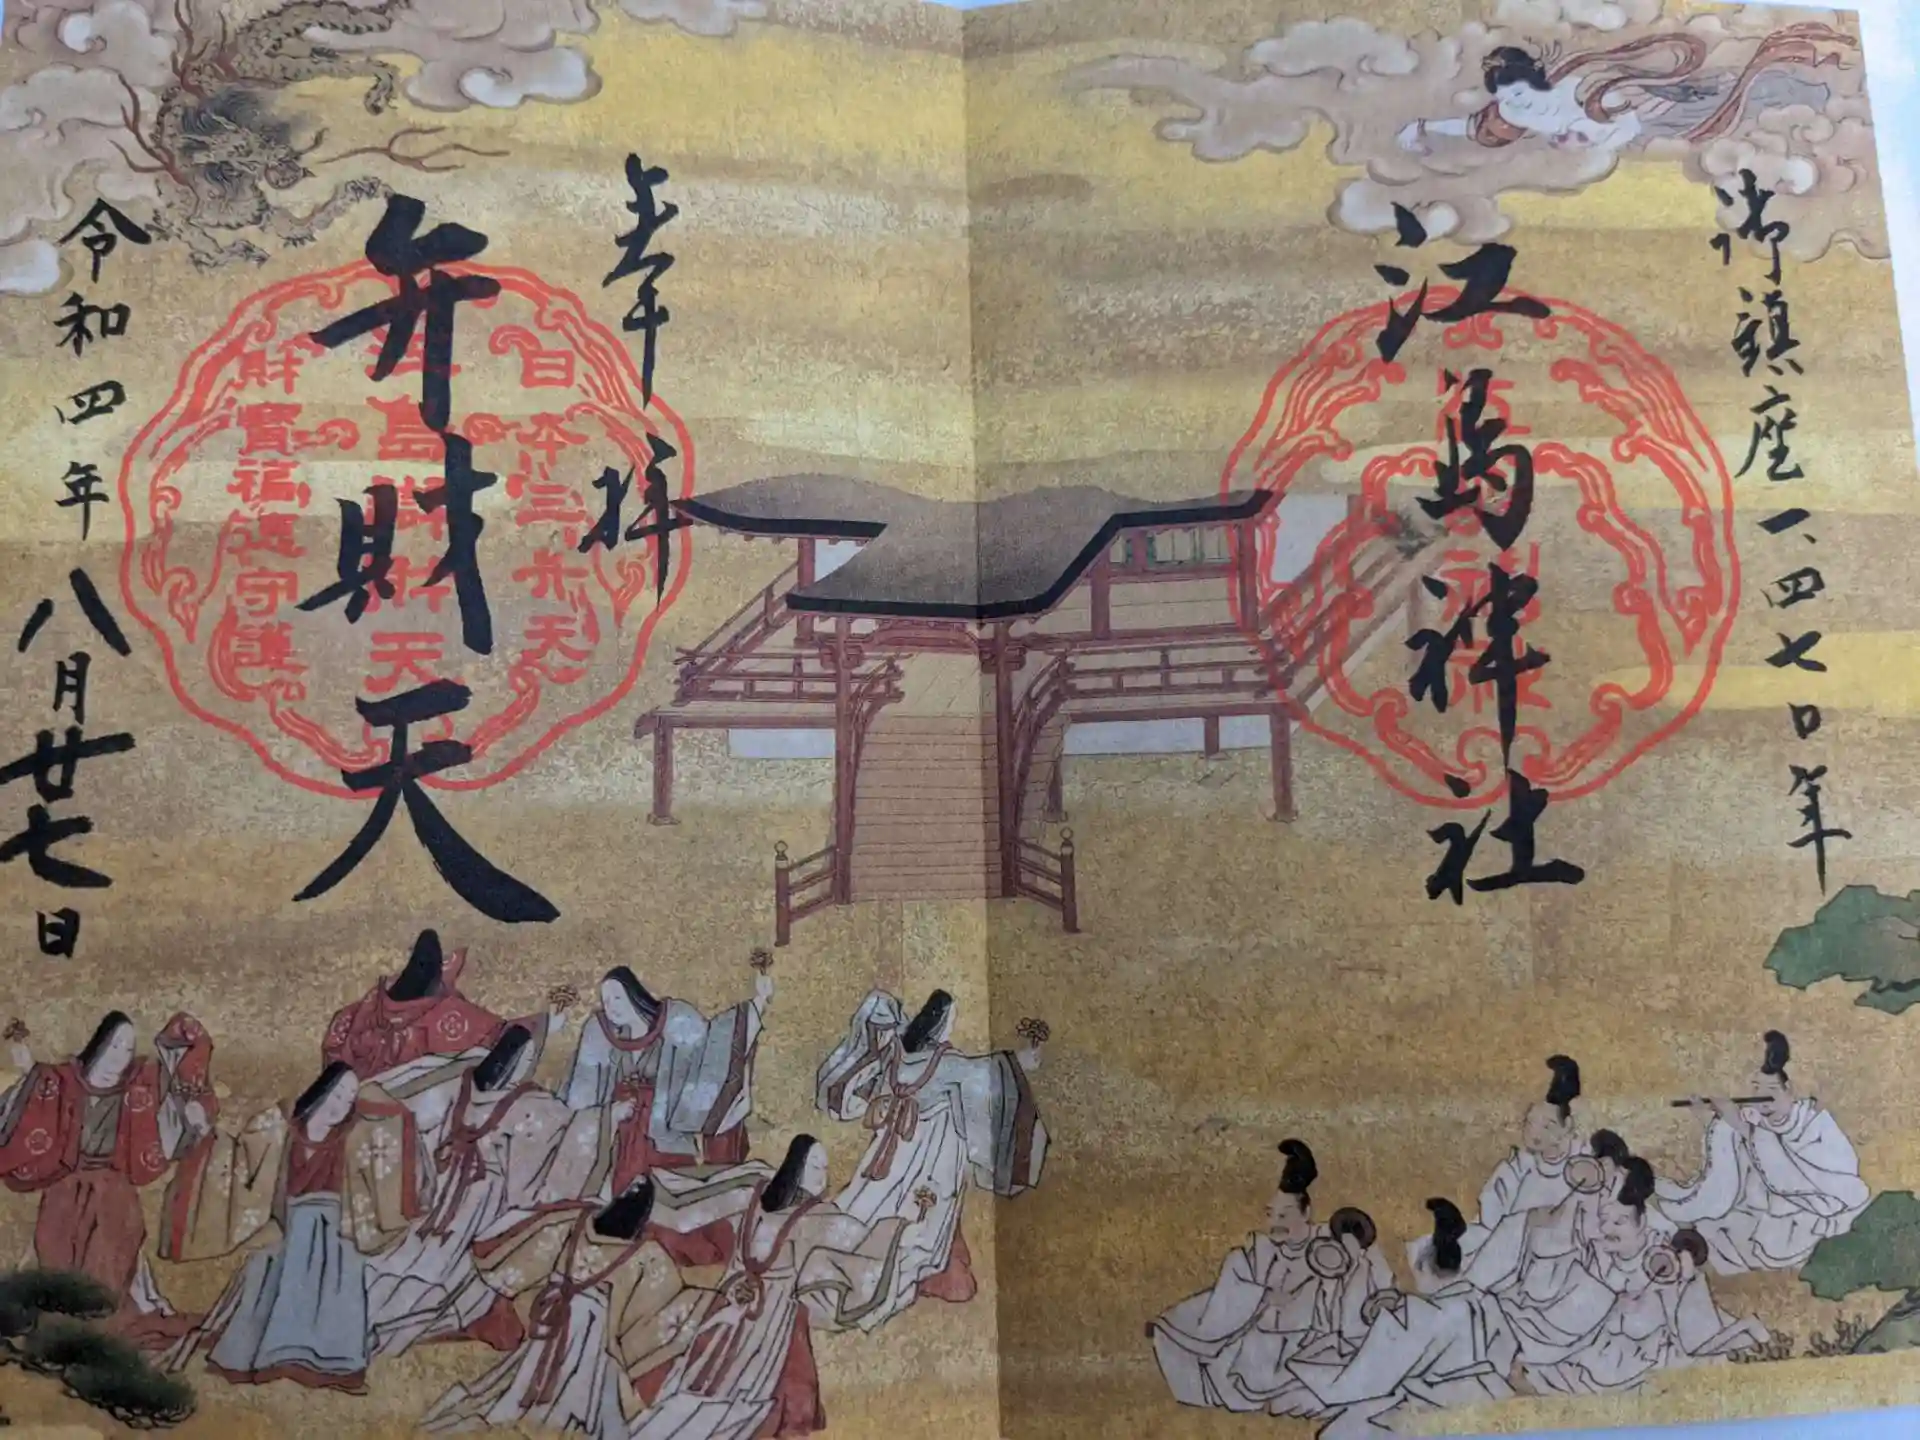 御鎮座一、四七〇年
江島神社
奉拝
弁財天
令和四年八月廿七日
日本三弁天
江島辯財天
財寳福徳守護